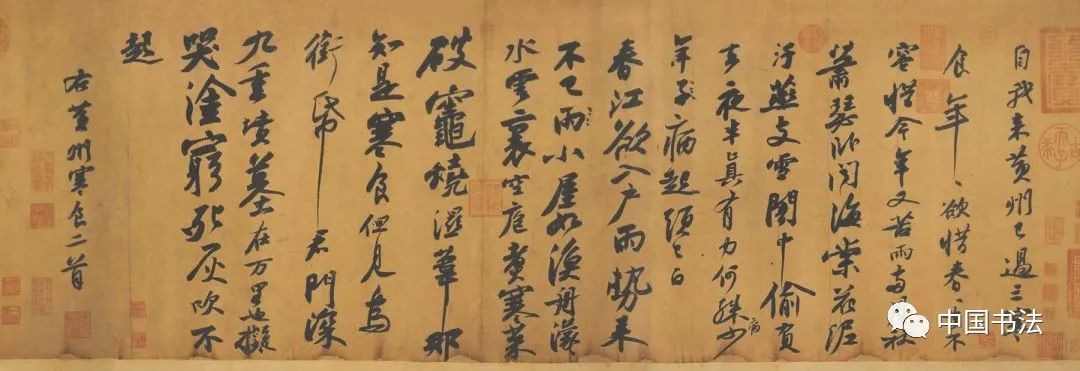 自我来黄州已過三寒
食年ヽ欲惜春ヽ去不
容惜今年又苦雨兩月秋
蕭瑟卧聞海棠花泥
汙燕支雪闇中偷負
去夜半真有力何殊少病
年子病起頭已白
春江欲入户雨勢来
不已雨小屋如漁舟濛ヽ
水雲裏空庖煮寒菜
破竈燒濕葦那
知是寒食但見烏
銜帋君門深
九重墳墓在万里也擬
哭塗窮死灰吹不
起
右黄州寒食二首
中国书法